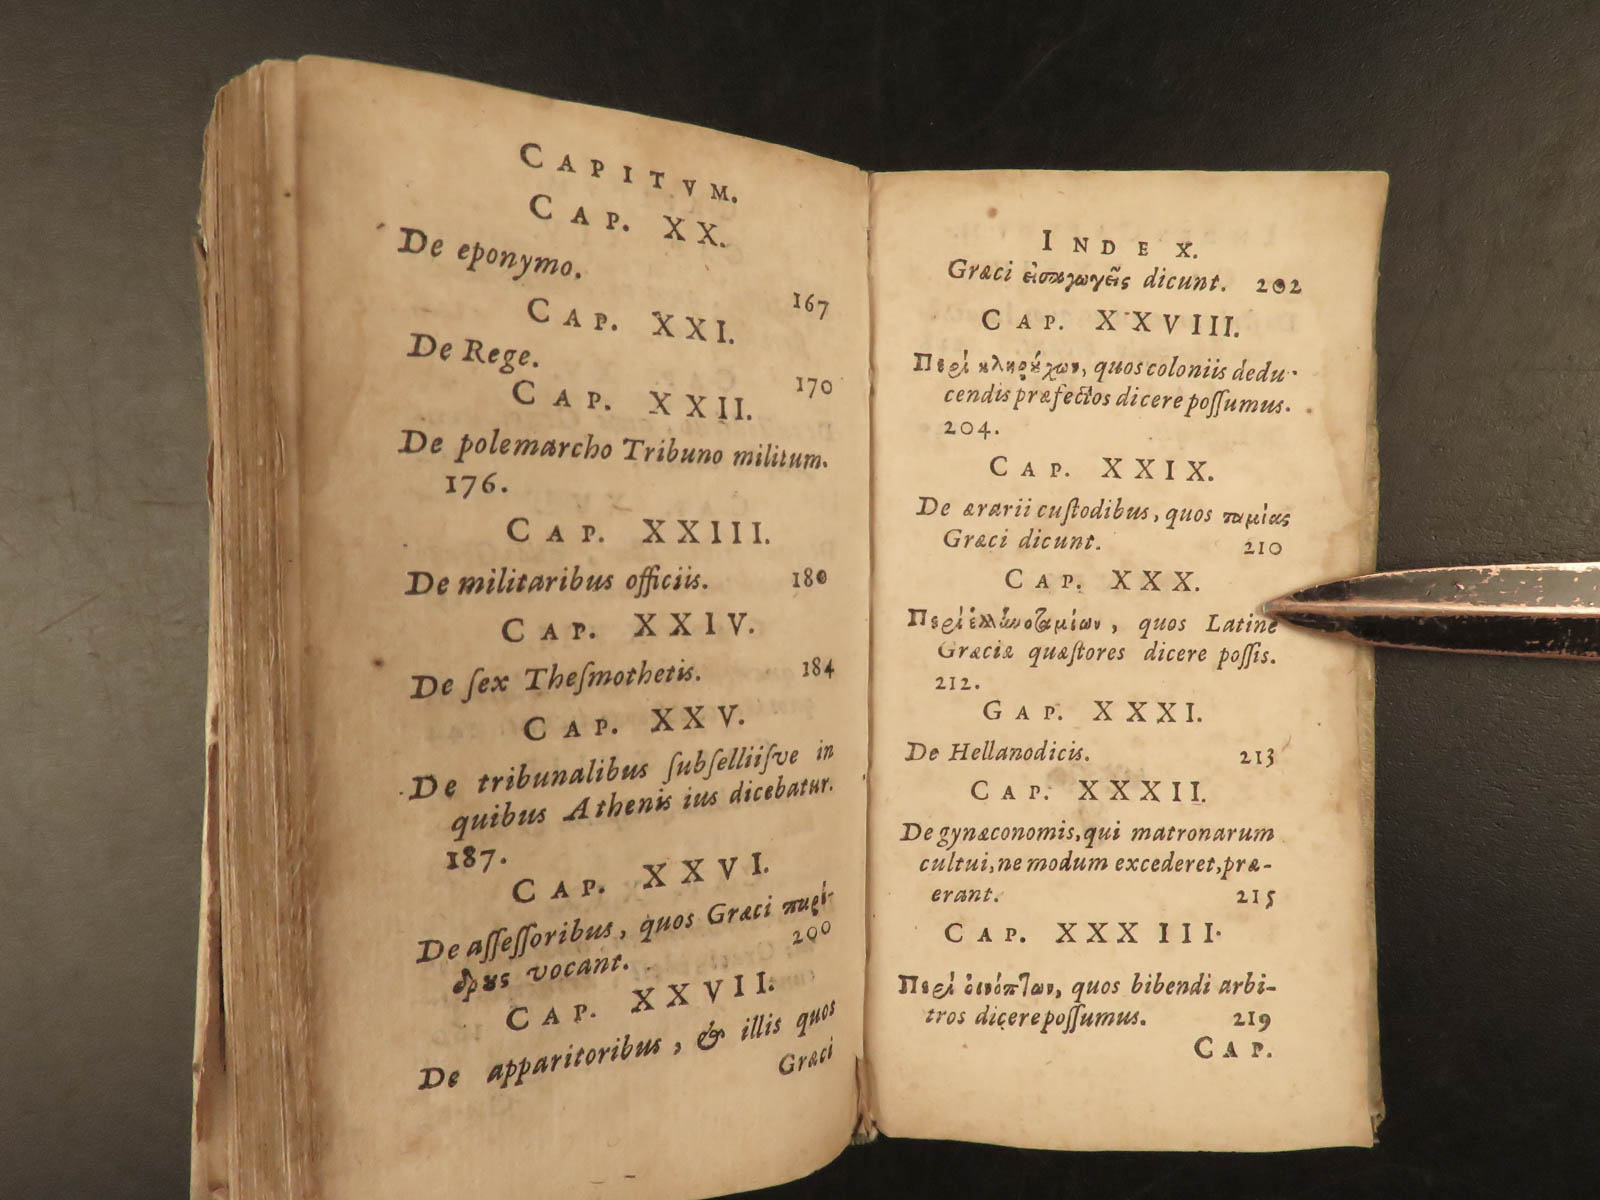 CAPITVM.
CAP. XX.
De eponymo.
167
CAP. XXI.
De Rege.
170
CAP. XXII.
De polemarcho Tribuno militum.
176.
CAP. XXIII.
De militaribus officiis. 180
CAP. XXIV.
De ſex Theſmothetis. 184
CAP. XXV.
De tribunalibus ſubſelliiſve in
quibus Athenis ius dicebatur.
187.
CAP. XXVI.
De aſſeſſoribus, quos Græci παρέ-
δρους vocant. 200
CAP. XXVII.
De apparitoribus, & illis quos
Græci
INDEX.
Græci εἰσαγωγεῖς dicunt. 202
CAP. XXVIII.
Περὶ κληρούχων, quos coloniis dedu-
cendis præfectos dicere poſſumus.
204.
CAP. XXIX.
De ærarii cuſtodibus, quos ταμίας
Græci dicunt. 210
CAP. XXX.
Περὶ ἑλληνοταμίων, quos Latine
Græciæ quæſtores dicere poſſis.
212.
GAP. XXXI.
De Hellanodicis. 213
CAP. XXXII.
De gynæconomis, qui matronarum
cultui, ne modum excederet, præ-
erant. 215
CAP. XXXIII.
Περὶ οἰνόπτων, quos bibendi arbi-
tros dicere poſſumus. 219
CAP.